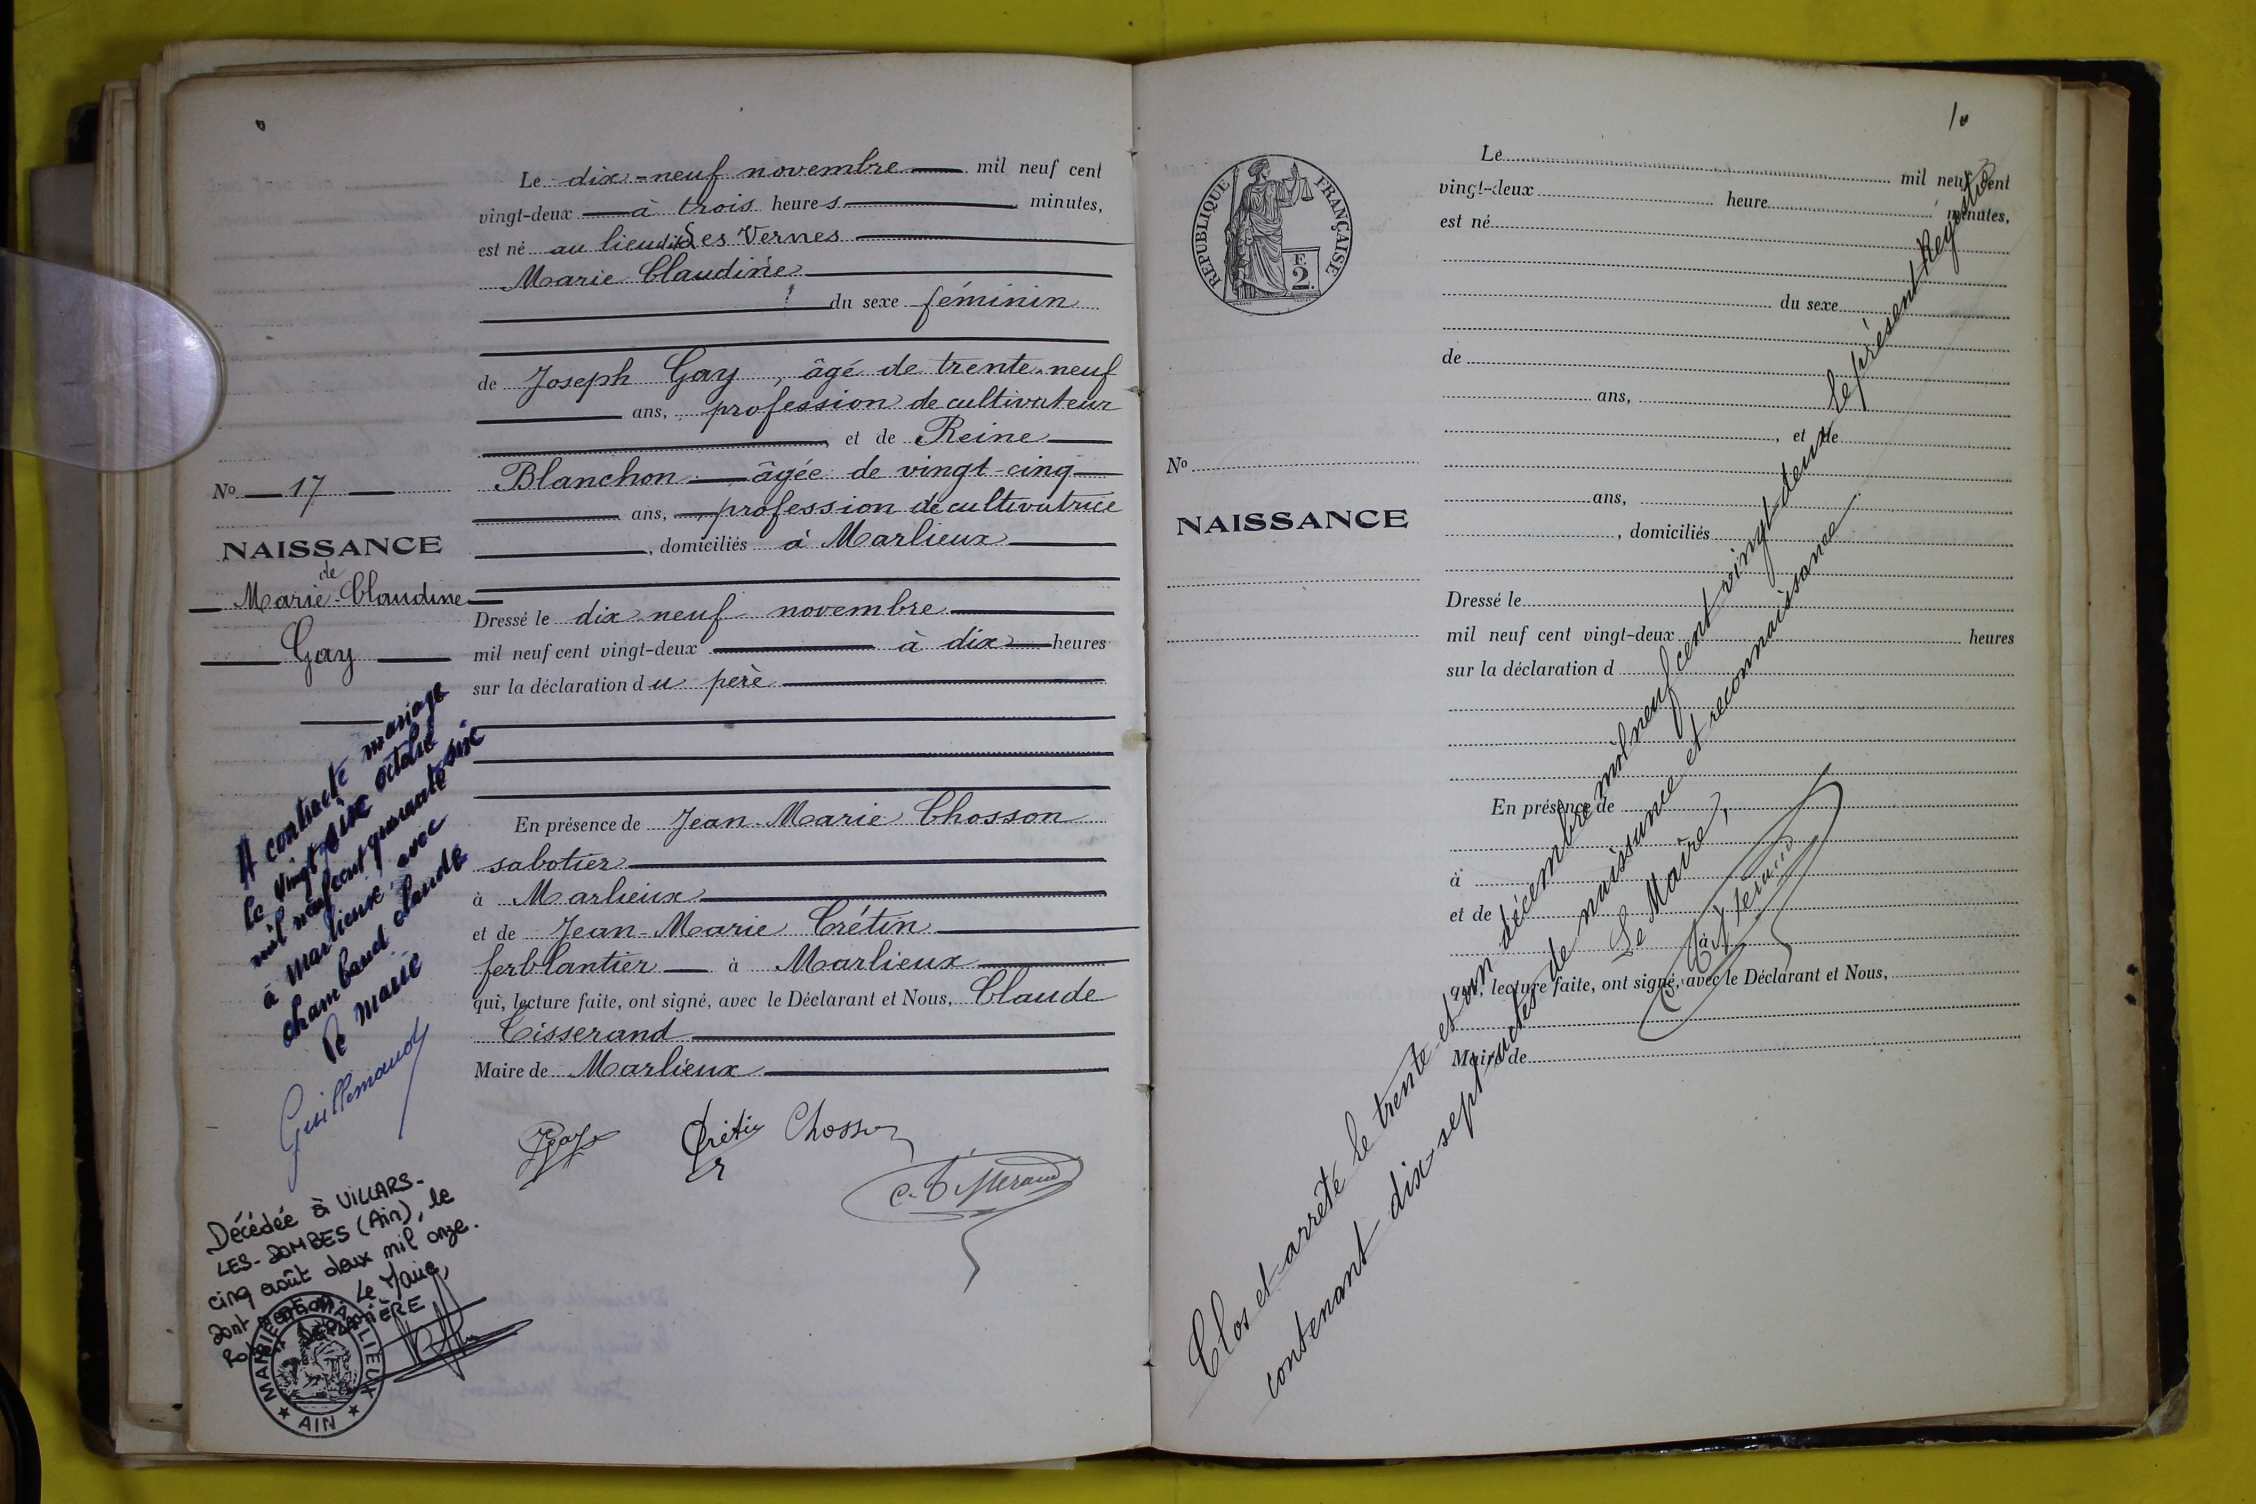 Le dix-neuf novembre mil neuf cent
vingt-deux à trois heures minutes,
est né au lieu dit Les Vernes
Marie Claudine
du sexe féminin
de Joseph Gay, âgé de trente-neuf
ans, profession de cultivateur
, et de Reine
Blanchon âgée de vingt-cinq
ans, profession de cultivatrice
, domiciliés à Marlieux
Dressé le dix neuf novembre
mil neuf cent vingt-deux à dix heures
sur la déclaration du père
En présence de Jean-Marie Chosson
sabotier
à Marlieux
et de Jean-Marie Crétin
ferblantier à Marlieux
qui, lecture faite, ont signé, avec le Déclarant et Nous, Claude
Tisserand
Maire de Marlieux
JGay Crétin Chosson
C. Tisserand
No 17
NAISSANCE
de
Marie-Claudine
Gay
A contracté mariage
le vingt six octobre
mil neuf cent quarante six
à Marlieux avec
chambaud claude
le Maire
Guillemaud
Décédée à VILLARS-
LES-DOMBES (Ain), le
cinq août deux mil onze.
Dont mention. Le Maire,
MAIRIE DE MARLIEUX
★ AIN ★
10
RÉPUBLIQUE FRANÇAISE
F.
2.
Le mil neuf cent
vingt-deux heure minutes,
est né
du sexe
de
ans,
, et de
ans,
, domiciliés
No
NAISSANCE
Dressé le
mil neuf cent vingt-deux heures
sur la déclaration d
En présence de
à
et de
à
qui, lecture faite, ont signé, avec le Déclarant et Nous,
Maire de
Clos et arrêté le trente et un décembre mil neuf cent vingt-deux le présent Registre
contenant dix-sept actes de naissance et reconnaissance
Le Maire,